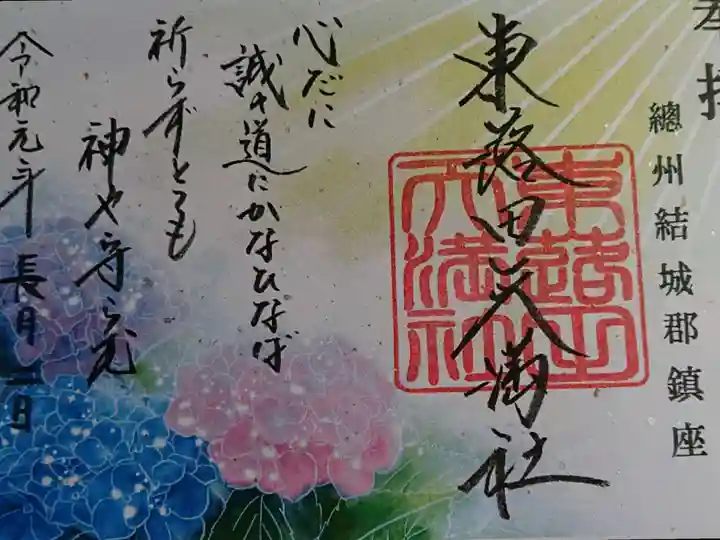 奉拝
總州結城郡鎮座
東蕗田天満社
東蕗田
天満社
心だに
誠の道にかなひなば
祈らずとても
神や守らむ
令和元年 長月二日